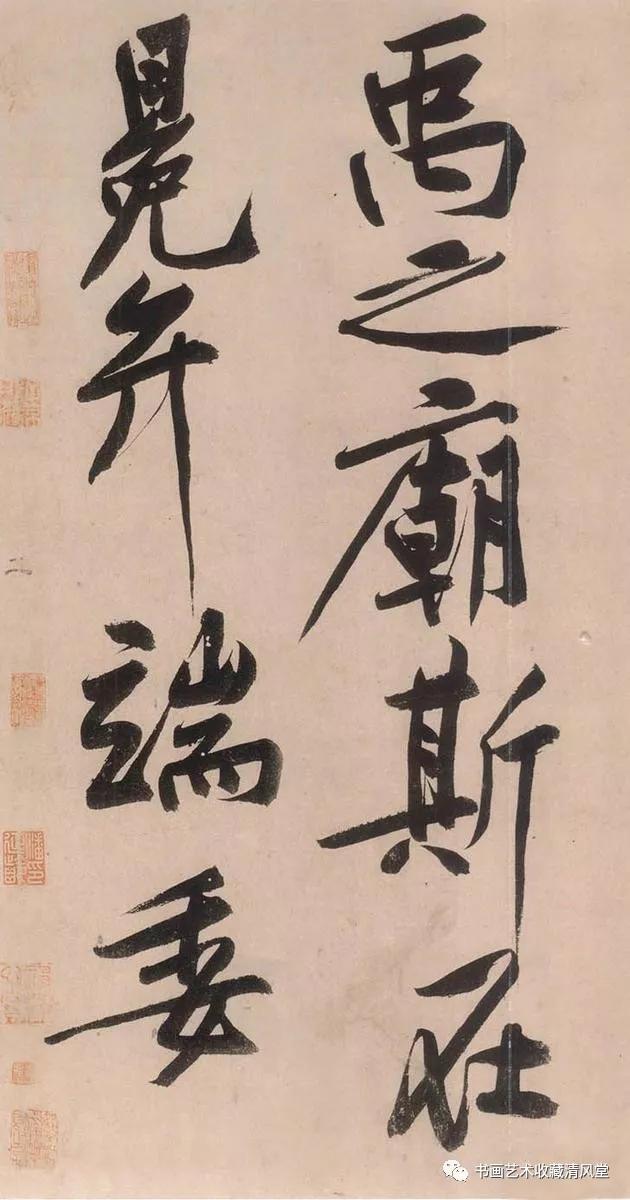 禹之廟斯在
冕弁端委
二
书画艺术收藏清风堂